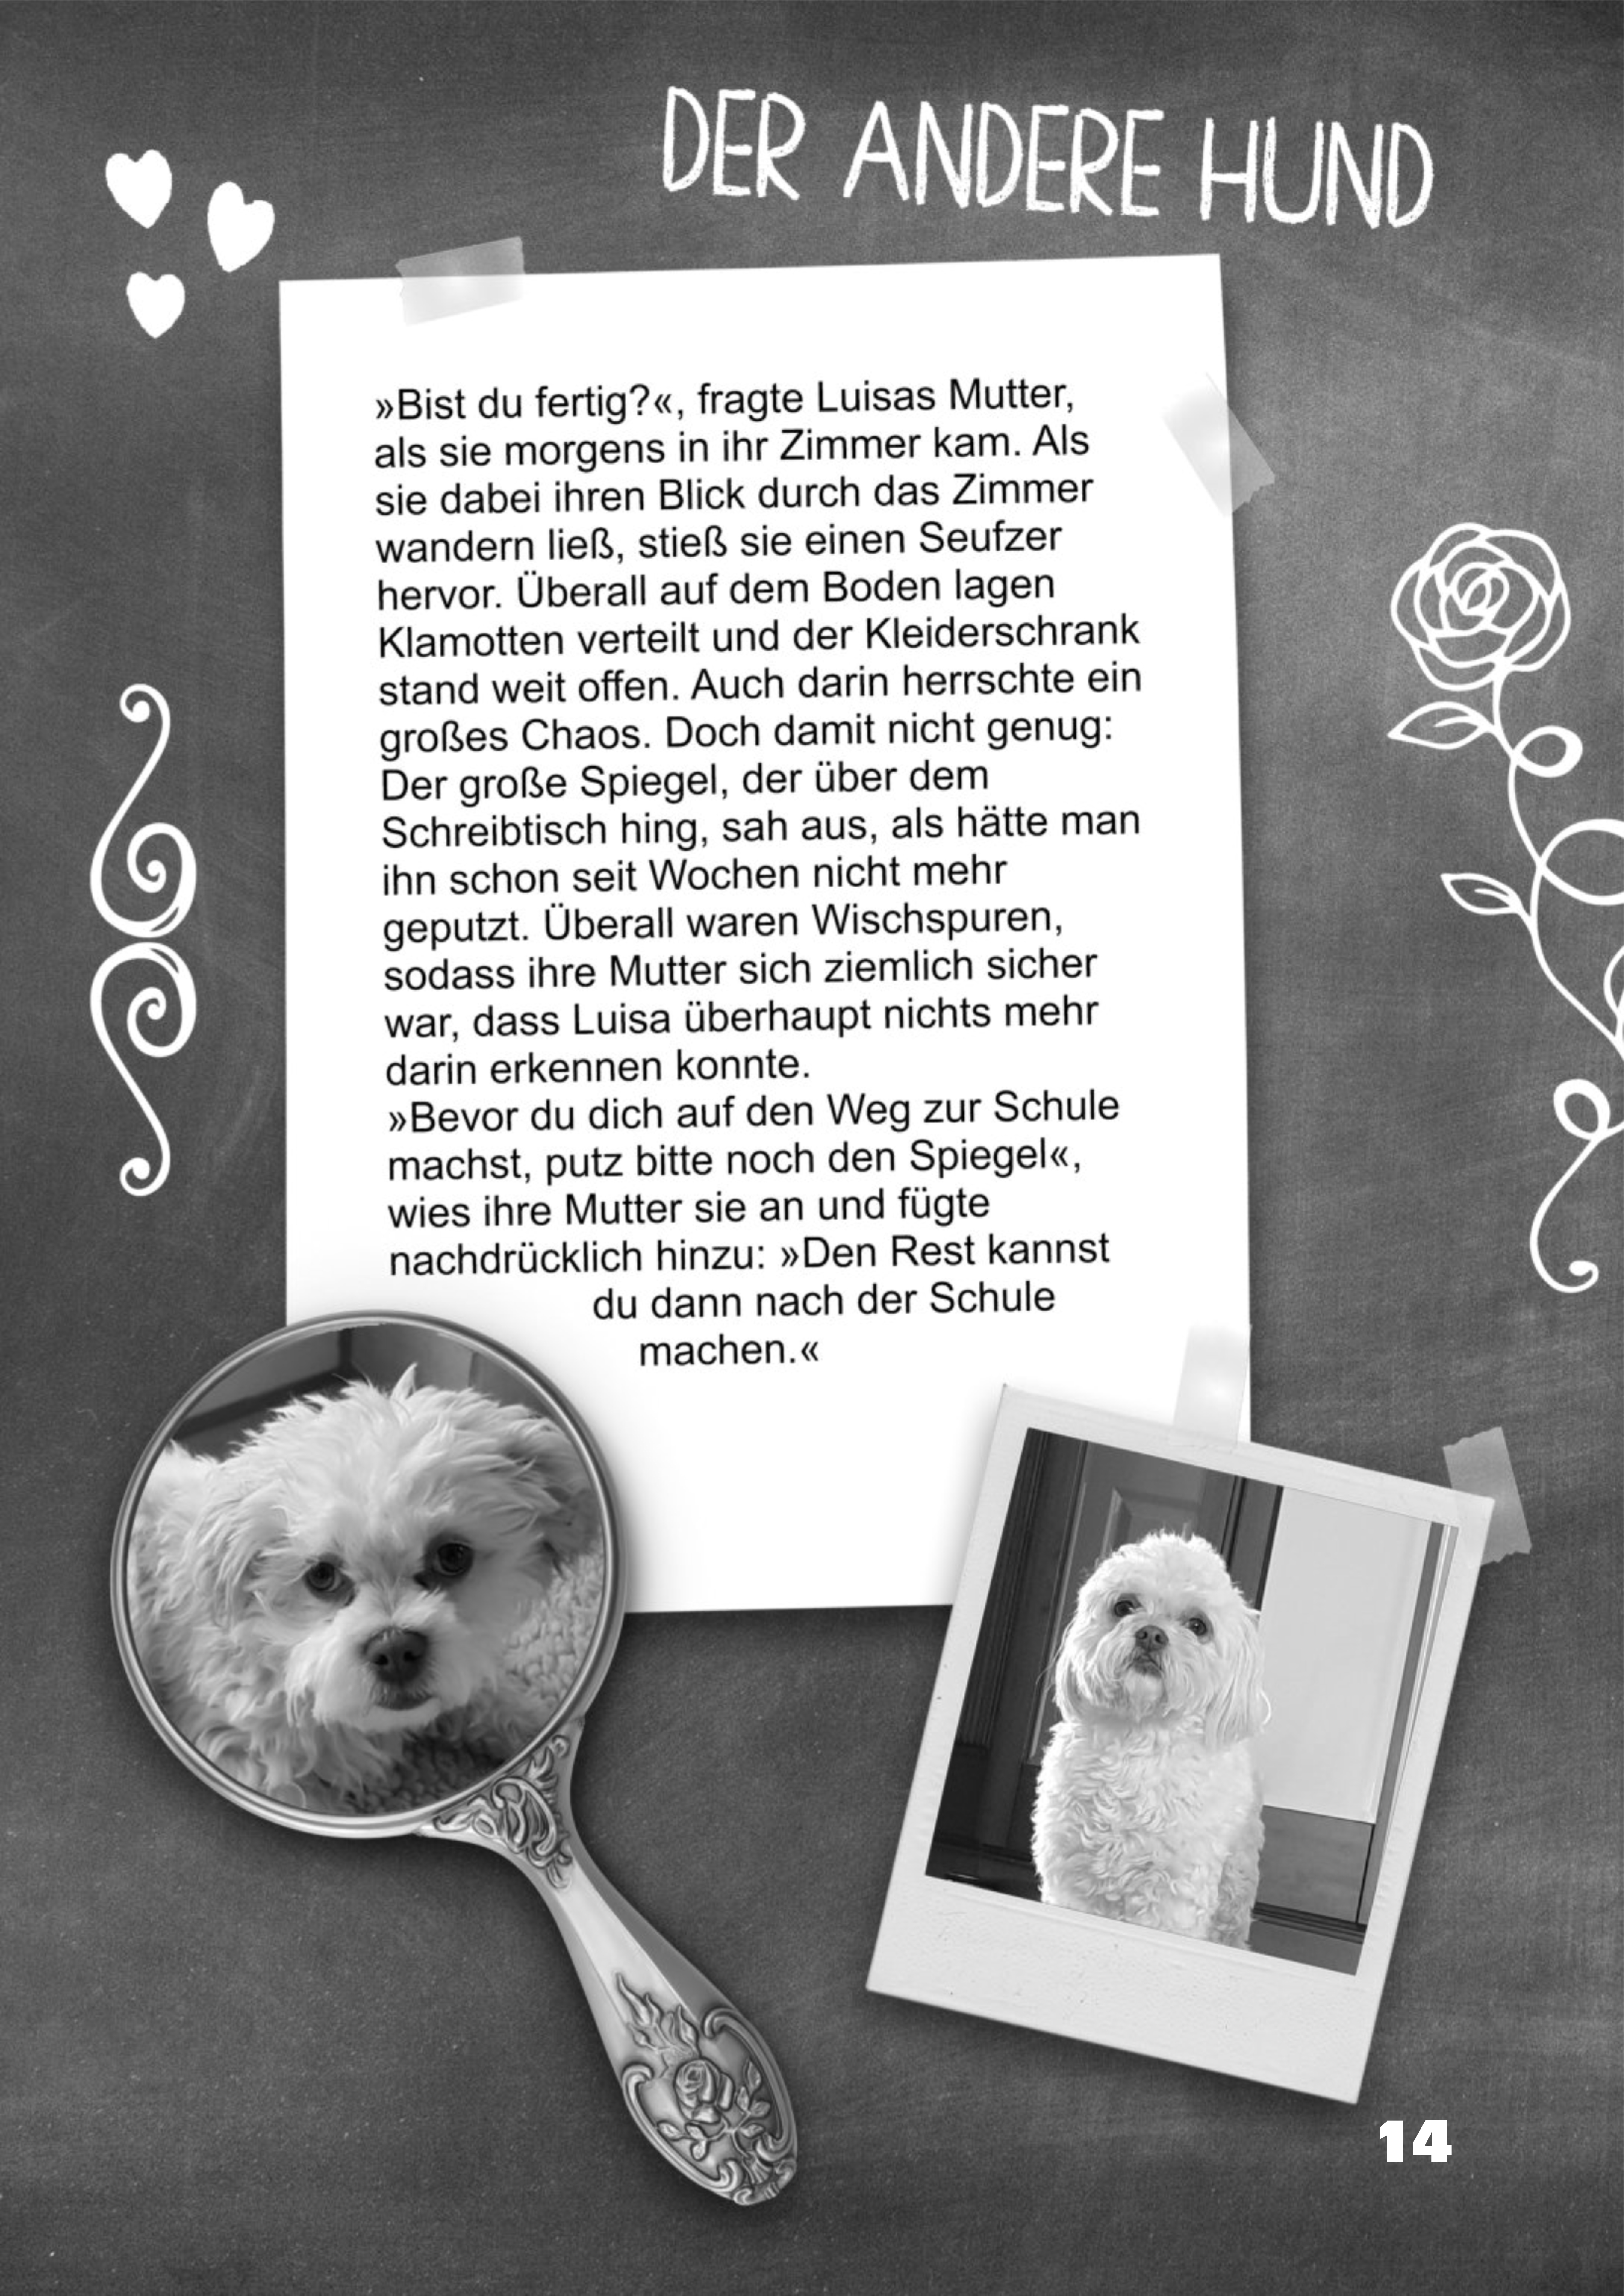 DER ANDERE HUND
»Bist du fertig?«, fragte Luisas Mutter,
als sie morgens in ihr Zimmer kam. Als
sie dabei ihren Blick durch das Zimmer
wandern ließ, stieß sie einen Seufzer
hervor. Überall auf dem Boden lagen
Klamotten verteilt und der Kleiderschrank
stand weit offen. Auch darin herrschte ein
großes Chaos. Doch damit nicht genug:
Der große Spiegel, der über dem
Schreibtisch hing, sah aus, als hätte man
ihn schon seit Wochen nicht mehr
geputzt. Überall waren Wischspuren,
sodass ihre Mutter sich ziemlich sicher
war, dass Luisa überhaupt nichts mehr
darin erkennen konnte.
»Bevor du dich auf den Weg zur Schule
machst, putz bitte noch den Spiegel«,
wies ihre Mutter sie an und fügte
nachdrücklich hinzu: »Den Rest kannst
du dann nach der Schule
machen.«
14